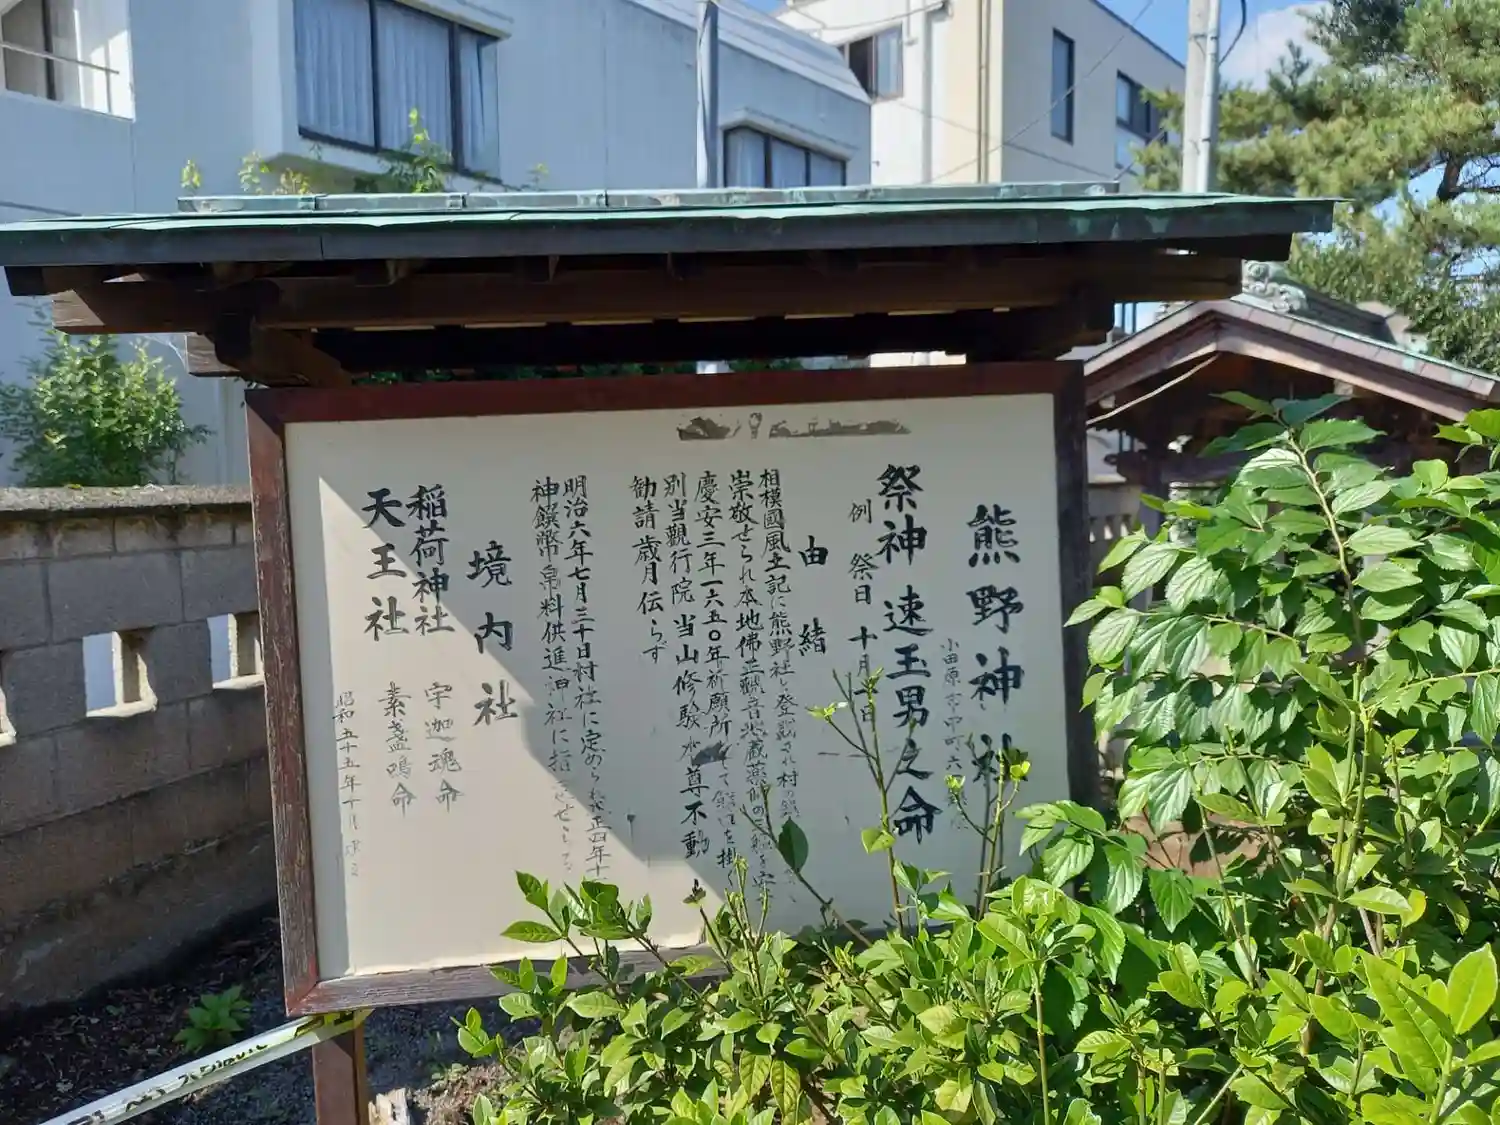 熊野神社
小田原市中町
祭神 速玉男之命
例祭日 十月一日
由緒
相模國風土記に熊野社と登載され村の
崇敬せられ本地佛正觀音
慶安三年一六五〇年祈願所
別当觀行院当山修験水尊不動
勧請歳月伝らず
明治六年七月三十日村社に定められ大正四年十
神饌幣帛料供進神社に指定せらる
境内社
稲荷神社 宇迦魂命
天王社 素盞嗚命
昭和五十五年十月